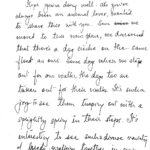 Hope you're doing well. As you've
always been an animal lover, wanted
to share this with you. Since we
moved to this new home, we discovered
that there's a dog circle on the same
floor as ours. Some day when we step
out for our walks, the dogs too are
taken out for their walks. It's such a
joy to see them trooping out with a
sprightly spring in their steps. It's
interesting to see such a diverse variety
of breeds walking together in our